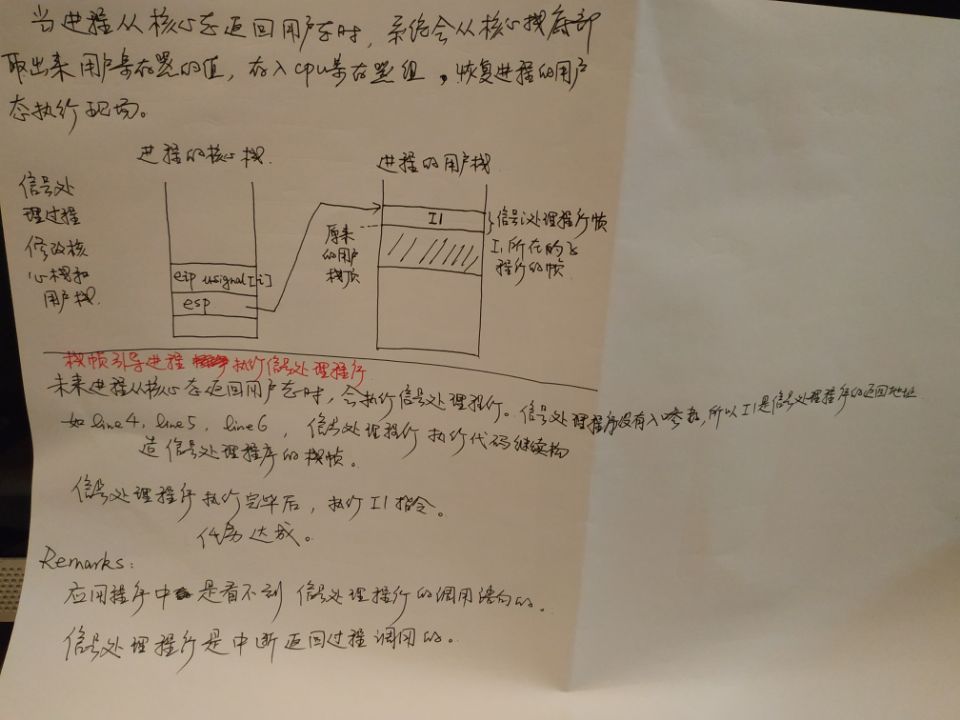 当进程从核心态返回用户态时，系统会从核心栈底部
取出来用户寄存器的值，存入cpu寄存器组，恢复进程的用户
态执行现场。
进程的核心栈
进程的用户栈
信号处
理过程
修改核
心栈和
用户栈
eip usignal[i]
esp
原来
的用户
栈顶
I1
}信号i处理程序帧
I1所在的
程序的帧
栈帧引导进程 执行信号处理程序
未来进程从核心态返回用户态时，会执行信号处理程序。信号处理程序没有入参，所以I1是信号处理程序的返回地址
如line4，line5，line6，信号处理程序执行代码继续构
造信号处理程序的栈帧。
信号处理程序执行完毕后，执行I1指令。
任务达成。
Remarks：
应用程序中是看不到信号处理程序的调用语句的。
信号处理程序是中断返回过程调用的。